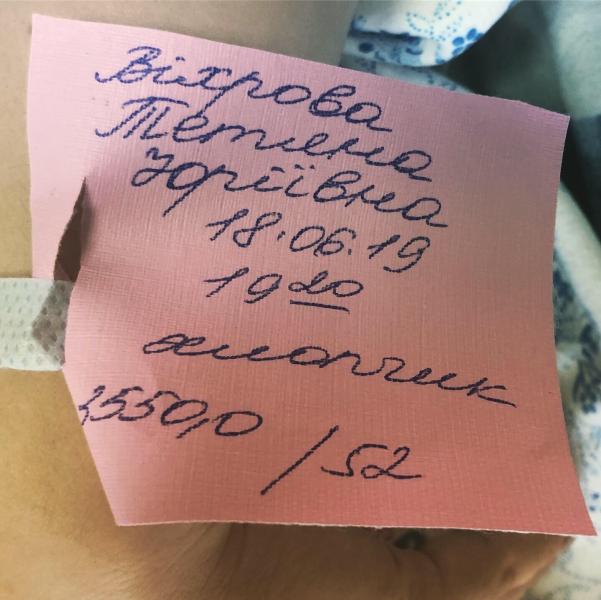 Віхрова
Тетяна
Юріївна
18.06.19
19 20
хлопчик
3550,0 / 52